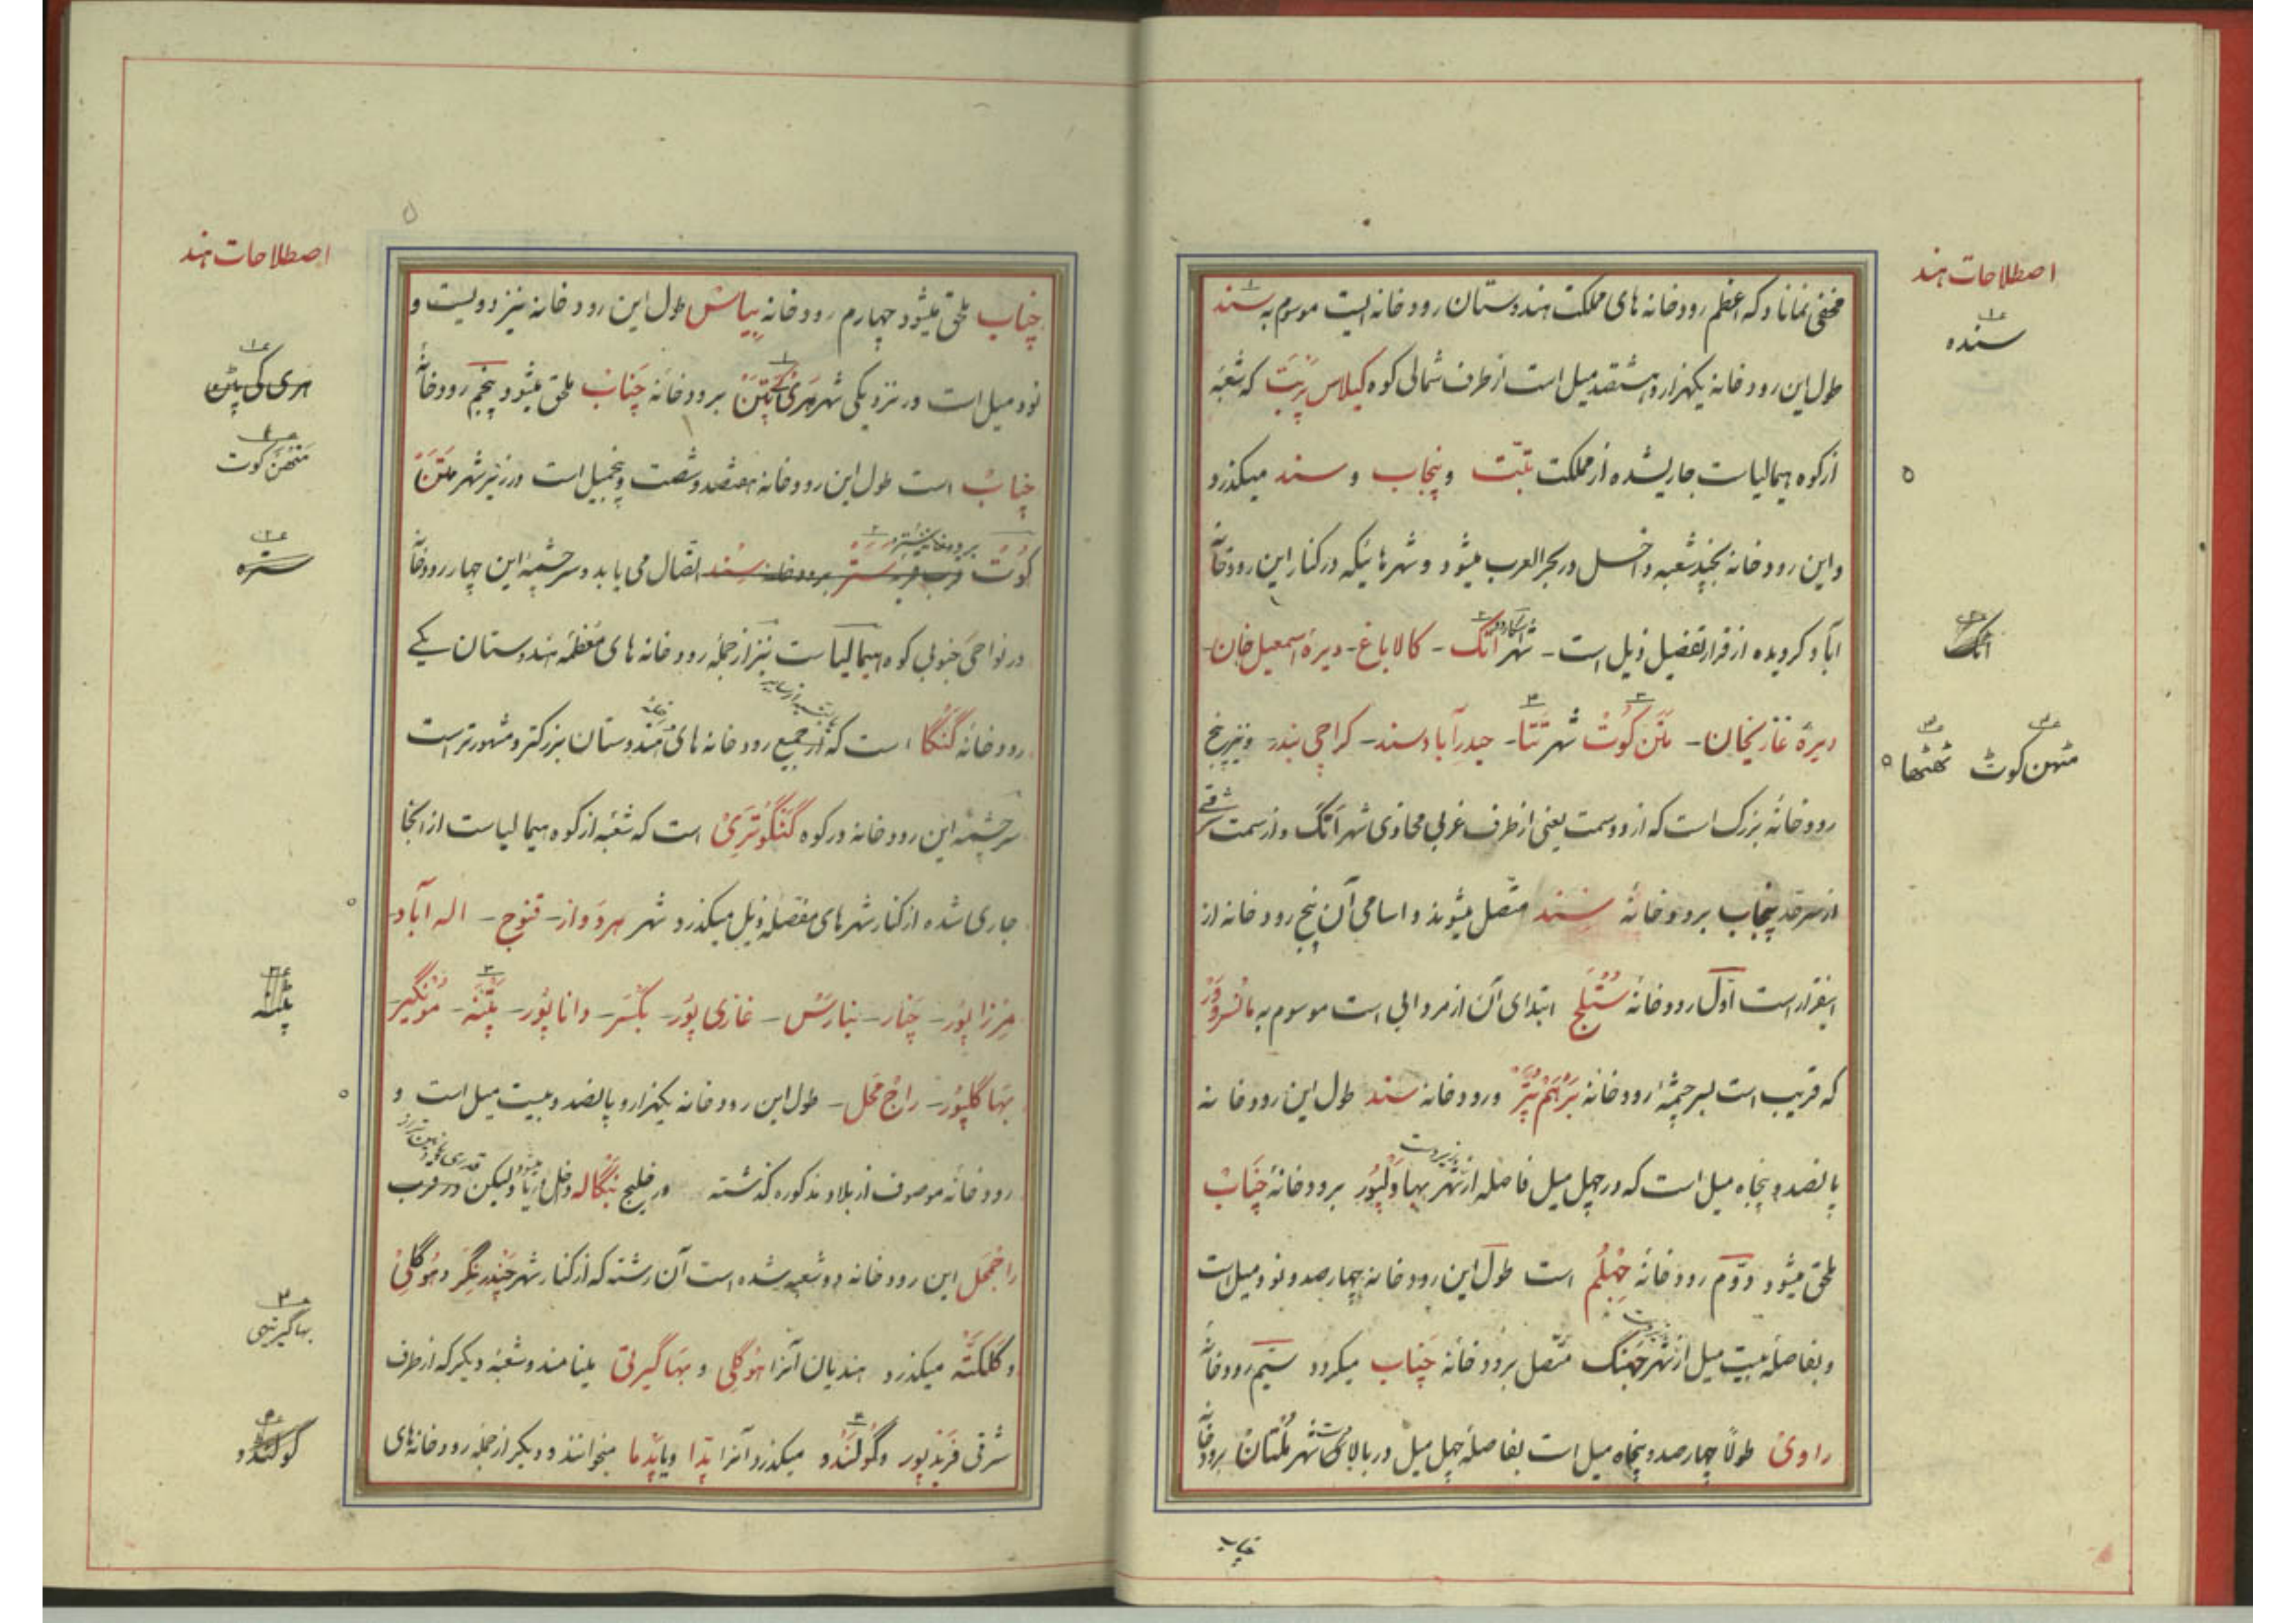 اصطلاحات هند
سنده
اتک
مٹهن کوٹ ٹھٹھا
مخفی نماناد که اعظم رودخانه های مملکت هندوستان رودخانه ایست موسوم به سند
طول این رودخانه یکهزار و هشتصد میل است از طرف شمالی کوه کیلاس پربت که شعبه
از کوه هیمالیاست جاریشده از مملکت تبّت و پنجاب و سند میکذرد
و این رودخانه بچند شعبه داخل در بحر العرب میشود و شهرهائیکه در کنار این رودخانه
آباد کردیده از قرار تفضیل ذیل است - شهر اتک - کالاباغ - دیرهٔ اسمعیل خان -
دیرهٔ غازیخان - متن کوت شهر تتا - حیدرآباد سند - کراچی بندر - و نیز پنج
رودخانهٔ بزرک است که از دو سمت یعنی از طرف غربی محاذی شهر اتک و از سمت شرقی
از سرحد پنجاب برودخانهٔ سند متصل میشوند و اسامی آن پنج رودخانه از
اینقرار است اوّل رودخانهٔ ستلج ابتدای آن از مردابی است موسوم به مانسرور
که قریب است بسرچشمهٔ رودخانه برهم پتر و رودخانه سند طول این رودخانه
پانصد و پنجاه میل است که در چهل میل فاصله از شهر بهاولپور برودخانهٔ چناب
ملحق میشود دوّم رودخانهٔ جهلم است طول این رودخانه چهارصد و نود میل است
و بفاصلهٔ بیست میل از شهر جهنک متصل برودخانه چناب میکردد سیّم رودخانهٔ
راوی طولًا چهارصد و پنجاه میل است بفاصلهٔ چهل میل در بالای شهر ملتان برودخانهٔ
چناب
اصطلاحات هند
هری کی پٹن
منهن کوت
ستره
پٹنه
بهاگیرتهی
گولندو
چناب ملحق میشود چهارم رودخانه بیاش طول این رودخانه نیز دویست و
نود میل است در نزدیکی شهر هری کی پتن برودخانه چناب ملحق میشود پنجم رودخانهٔ
چناب است طول این رودخانه هفتصد و شصت و پنجمیل است در زیر شهر متن
کوت برودخانه سند اتصال می یابد و سرچشمهٔ این چهار رودخانه
در نواحی جنوبی کوه هیمالیاست نیز از جملهٔ رودخانه های معظمهٔ هندوستان یکے
رودخانه گنگا است که از جمیع رودخانه های هندوستان بزرکتر و مشهورتر است
سرچشمه این رودخانه در کوه گنگوتری است که شعبه از کوه هیمالیاست از آنجا
جاری شده از کنار شهرهای مفصلهٔ ذیل میکذرد شهر هردواز - قنوج - اله آباد -
مرزاپور - چنار - بنارس - غازی پور - بکسر - داناپور - پتنه - مونگیر -
بهاگلپور - راج محل - طول این رودخانه یکهزار و پانصد و بیست میل است و
رودخانهٔ موصوف از بلاد مذکوره کذشته در خلیج بنگاله داخل دریا میشود ولیکن در قرب
راجمحل این رودخانه دو شعبه شده است آن رشته که از کنار شهر چندرنگر و هوگلی
و کلکته میکذرد هندیان آنرا هوگلی و بهاگیرتی مینامند و شعبه دیکر که از طرف
شرقی فریدپور و گولندو میکذرد آنرا پدا و یا پدما میخوانند و دیکر از جمله رودخانه های